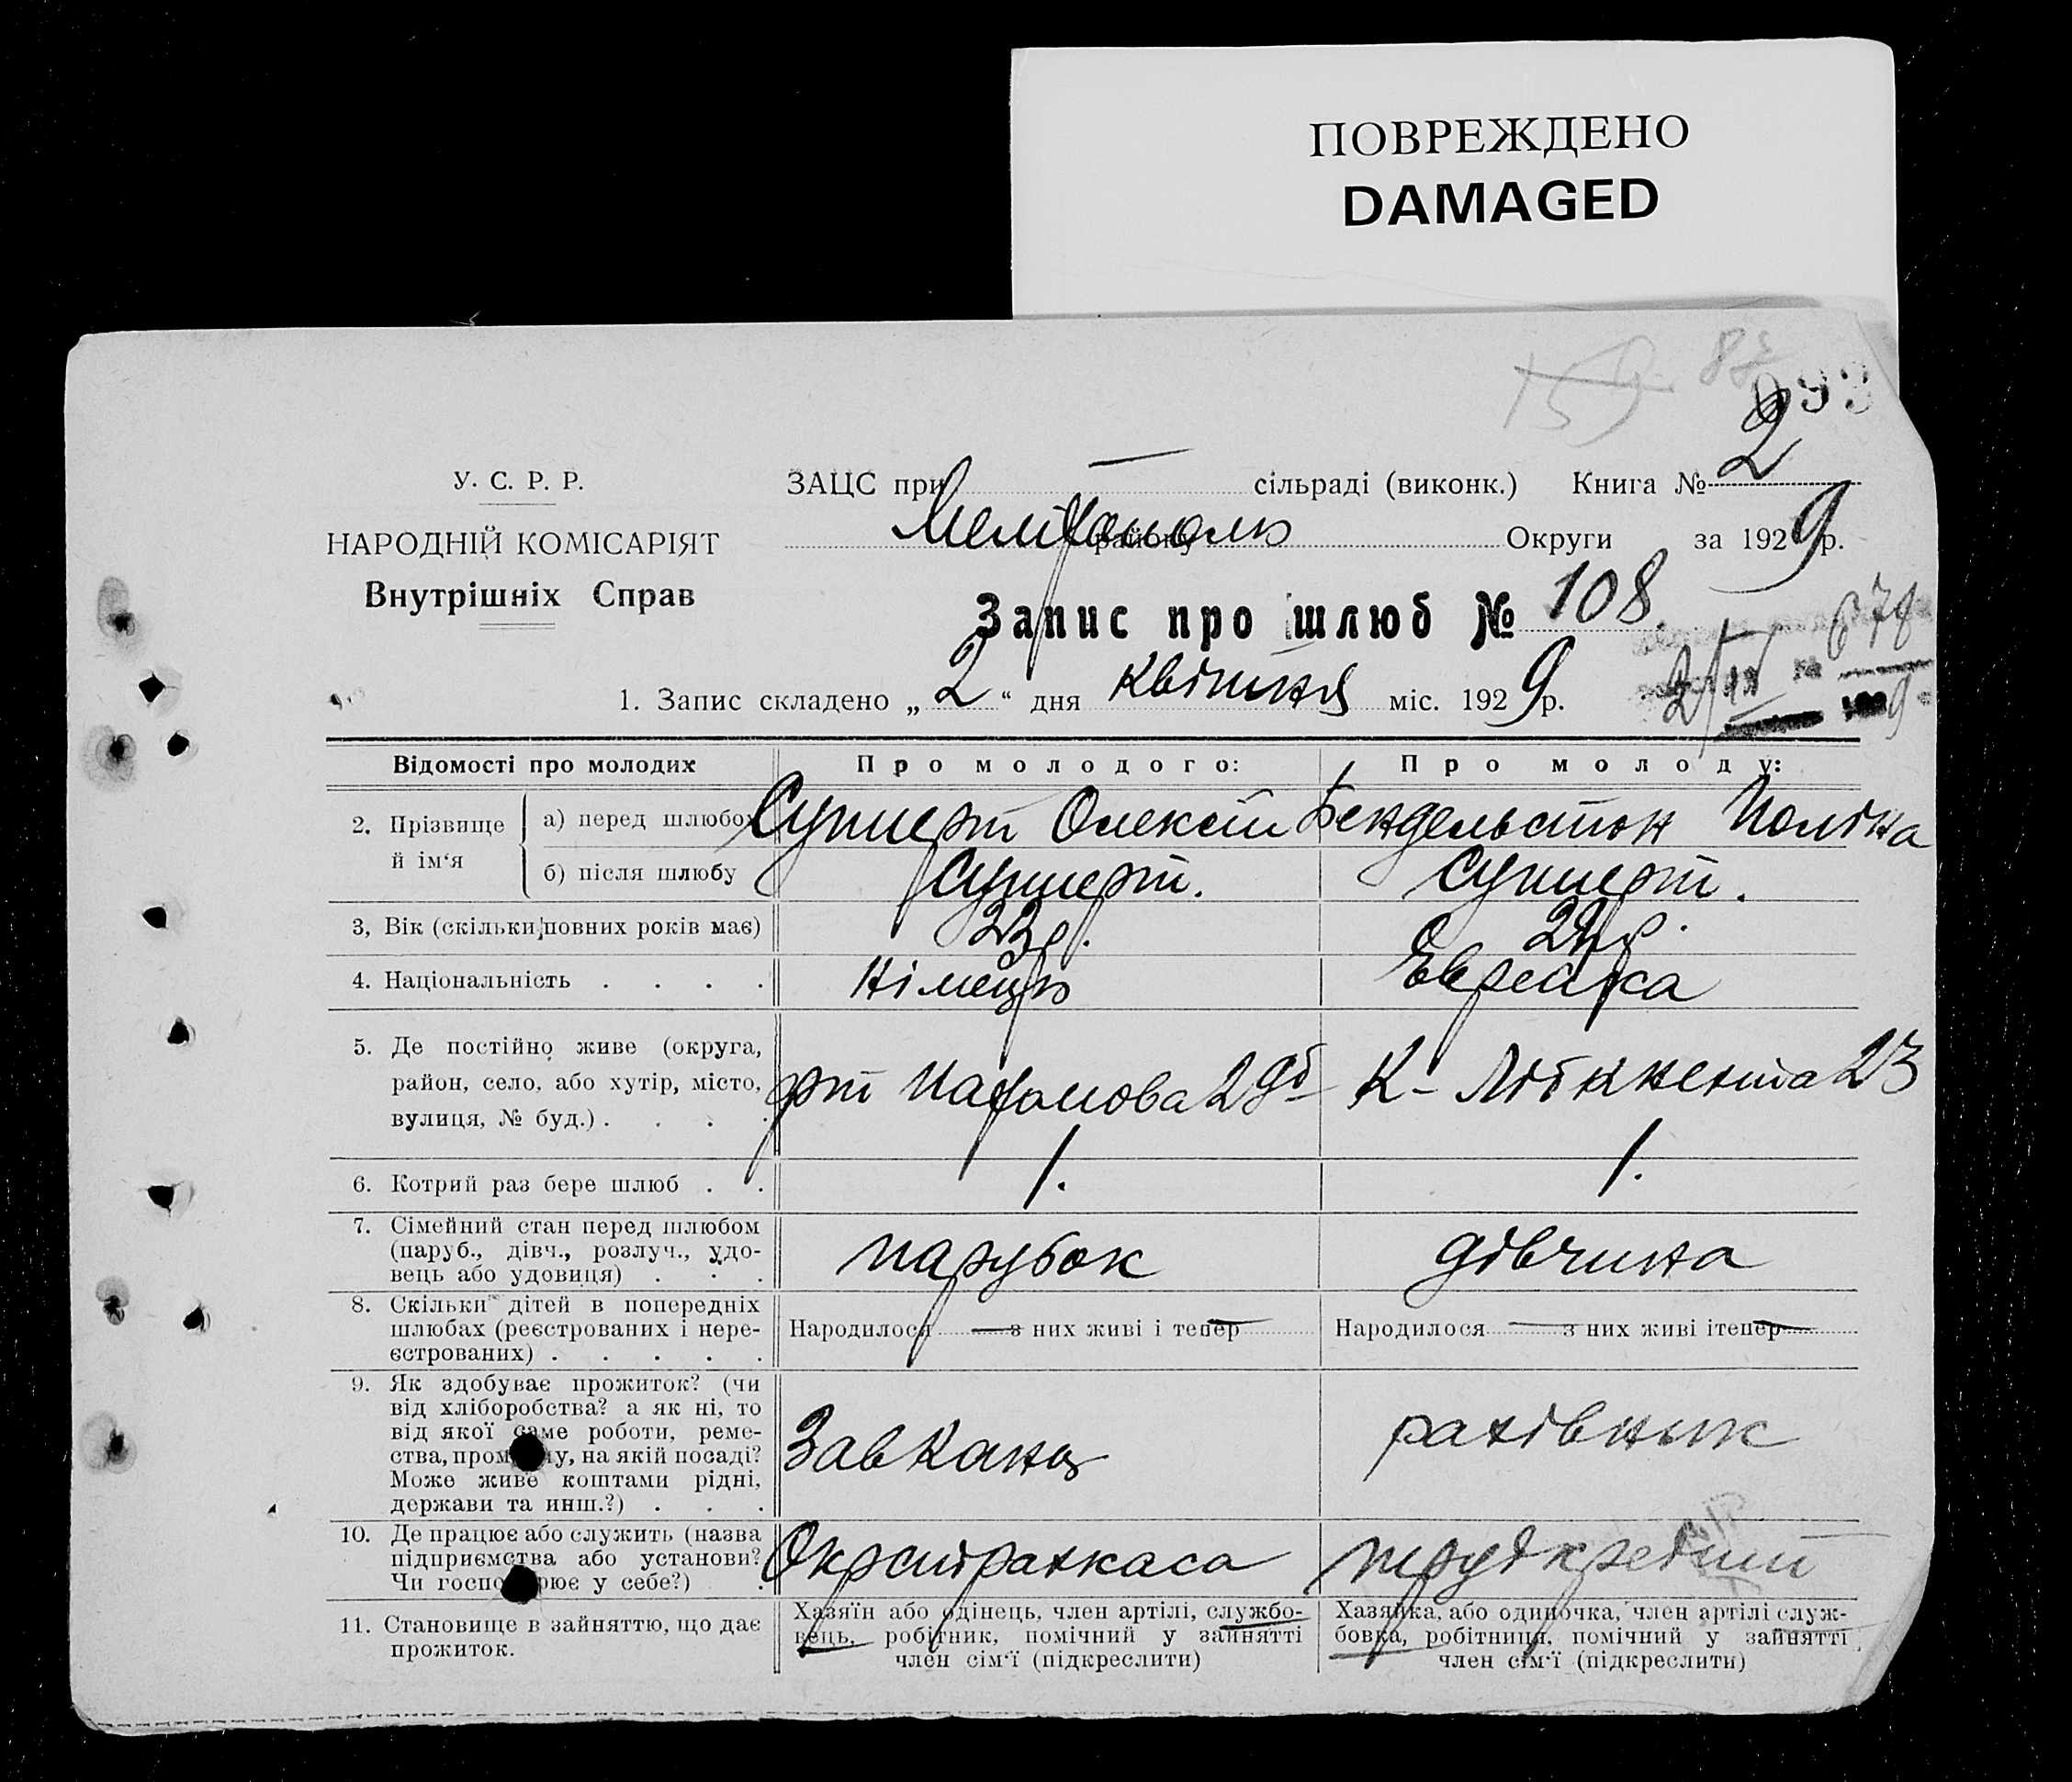 ПОВРЕЖДЕНО
DAMAGED
159 8
2
У. С. Р. Р.
НАРОДНІЙ КОМІСАРІЯТ
Внутрішніх Справ
ЗАЦС при — сільраді (виконк.) Книга № 2
Мелітополь району Округи за 1929 р.
Запис про шлюб № 108.
678
1. Запис складено „ 2 “ дня квітня міс. 1929 р.
Відомості про молодих
Про молодого:
Про молоду:
2. Прізвище й ім‘я
а) перед шлюбом
Олексій
Бендельстон Поліна
б) після шлюбу
3, Вік (скільки повних років має)
23 р.
4. Національність . . . .
німець
Еврейка
5. Де постійно живе (округа,
район, село, або хутір, місто,
вулиця, № буд.) . . . .
2
К- Лібкнехта 23
6. Котрий раз бере шлюб . .
1.
1.
7. Сімейний стан перед шлюбом
(паруб., дівч., розлуч., удо-
вець або удовиця) . . .
парубок
дівчина
8. Скільки дітей в попередніх
шлюбах (реєстрованих і нере-
єстрованих) . . . . .
Народилося — з них живі і тепер —
Народилося — з них живі ітепер —
9. Як здобуває прожиток? (чи
від хліборобства? а як ні, то
від якої саме роботи, реме-
ства, промислу, на якій посаді?
Може живе коштами рідні,
держави та инш.?) . . .
Завканц
рахівник
10. Де працює або служить (назва
підприємства або установи?
Чи господарює у себе?) .
Окрстрахкаса
11. Становище в зайняттю, що дає
прожиток.
Хазяїн або одінець, член артілі, службо-
вець, робітник, помічний у зайнятті
член сім‘ї (підкреслити)
Хазяйка, або одиночка, член артілі служ-
бовка, робітниця, помічний у зайнятті
член сім‘ї (підкреслити)